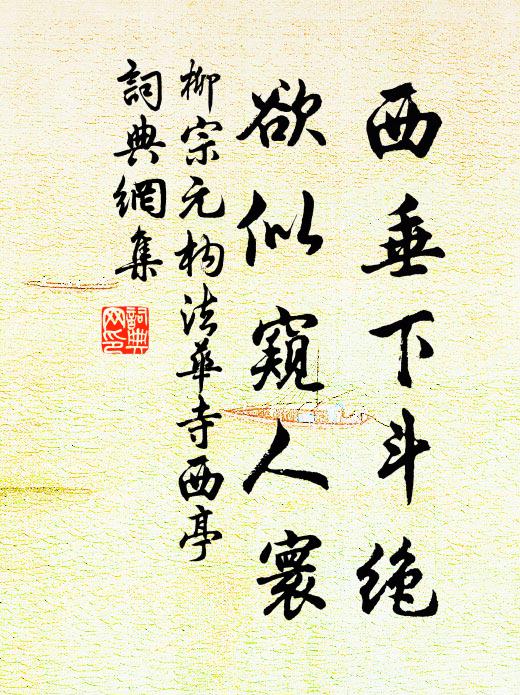 西垂下斗絶
欲似窺人寰
柳宗元构法華寺西亭
詞典網集
詞典网印